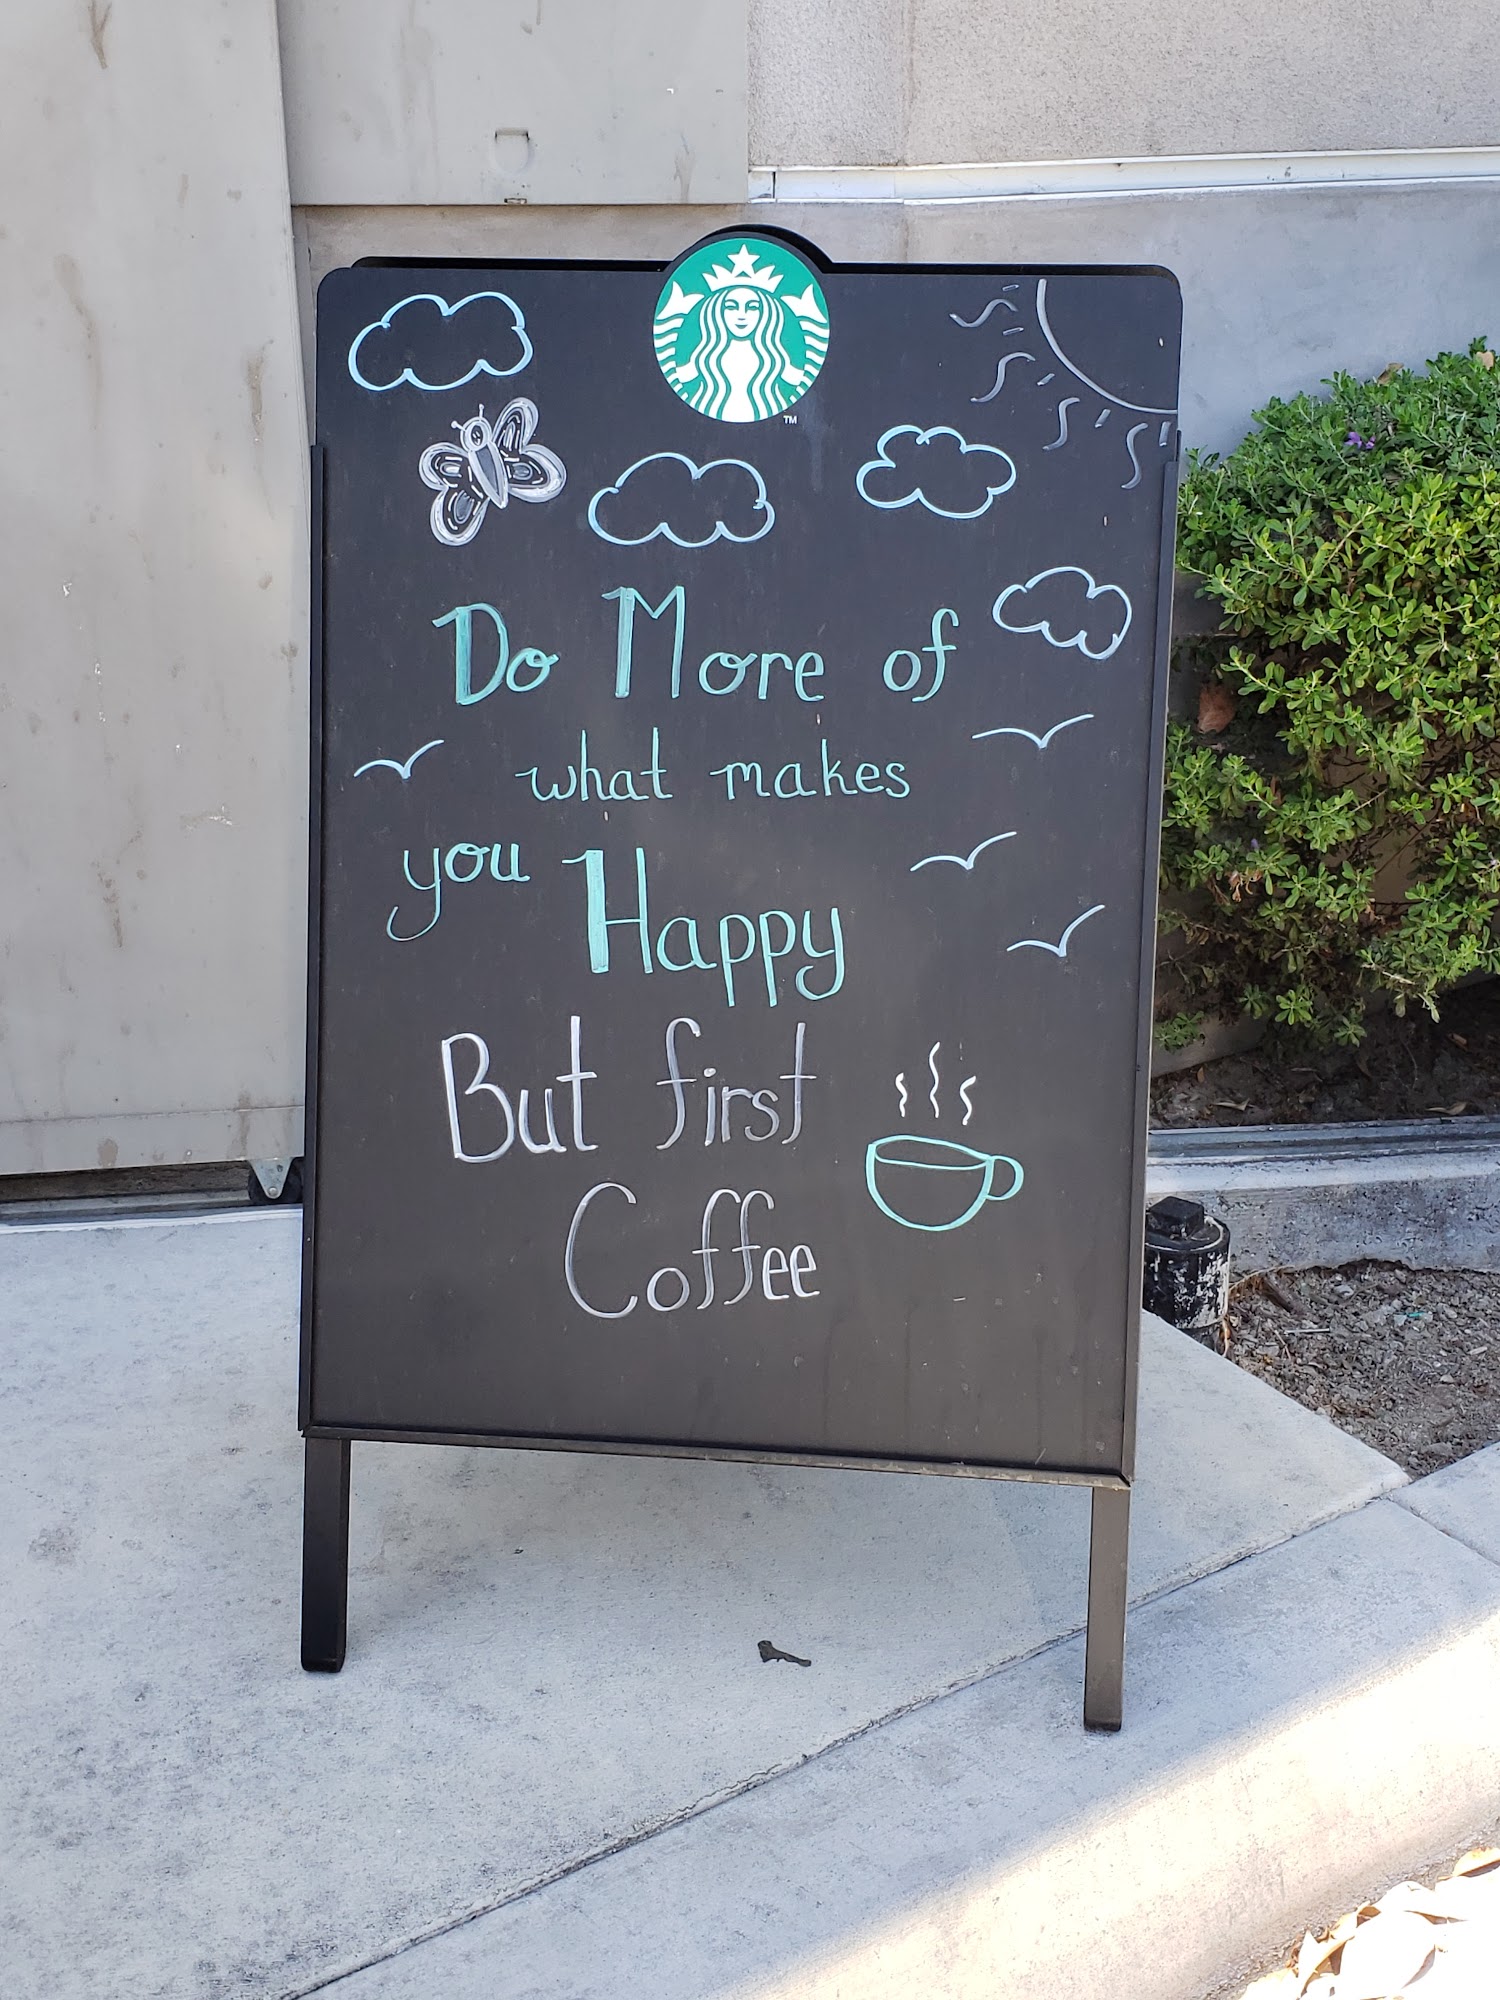 TM
Do More of
what makes
you Happy
But first
Coffee